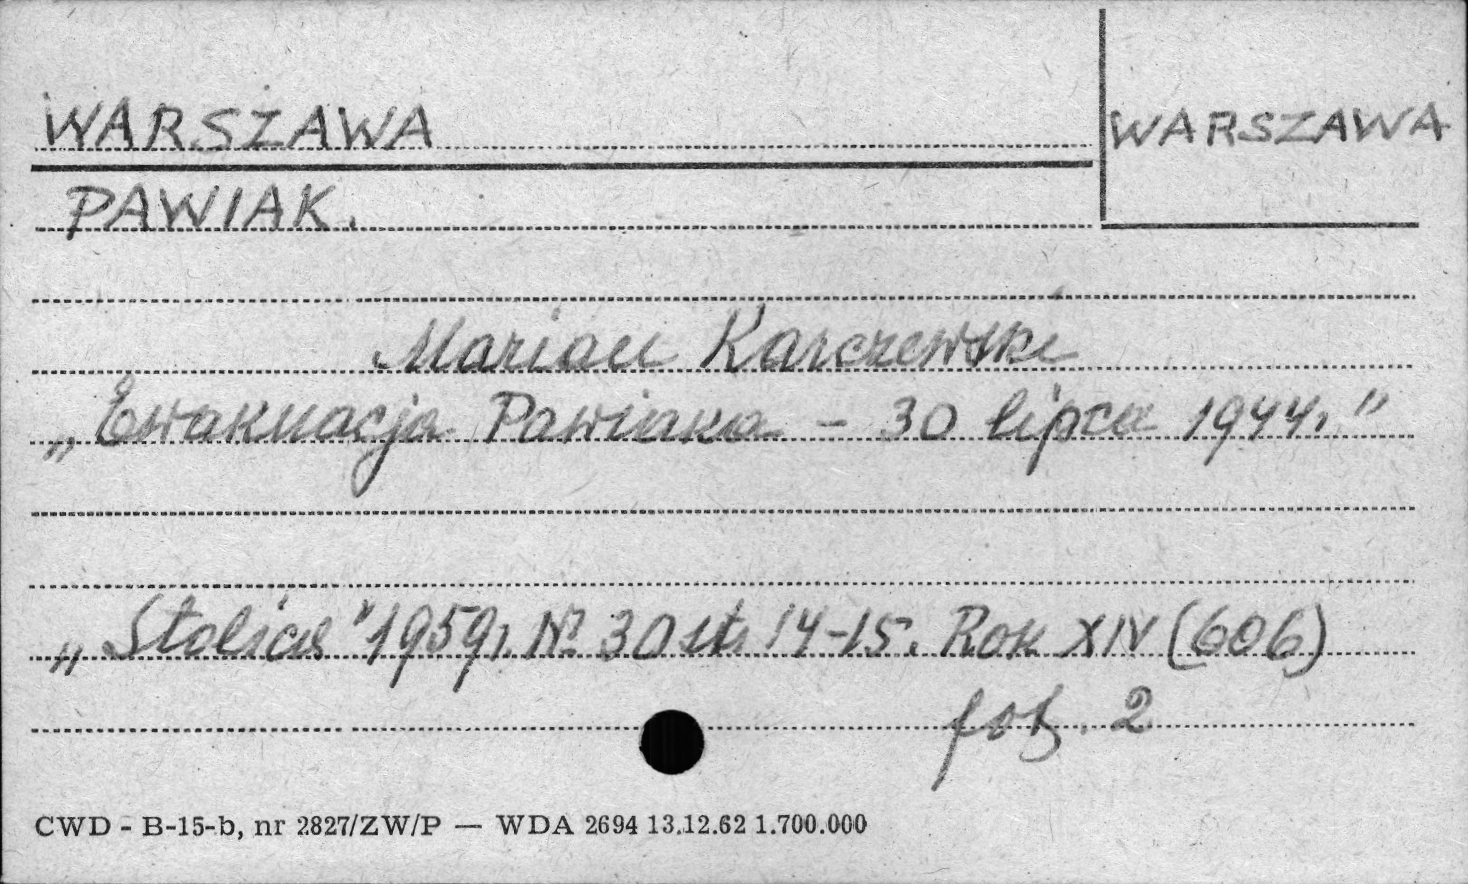 WARSZAWA
WARSZAWA
PAWIAK.
Marian Karczewski
„Ewakuacja Pawiaka - 30 lipca 1944."
„Stolica" 1959r. № 30 str. 14-15. Rok XIV (606)
fot. 2
CWD - B-15-b, nr 2827/ZW/P — WDA 2694 13.12.62 1.700.000